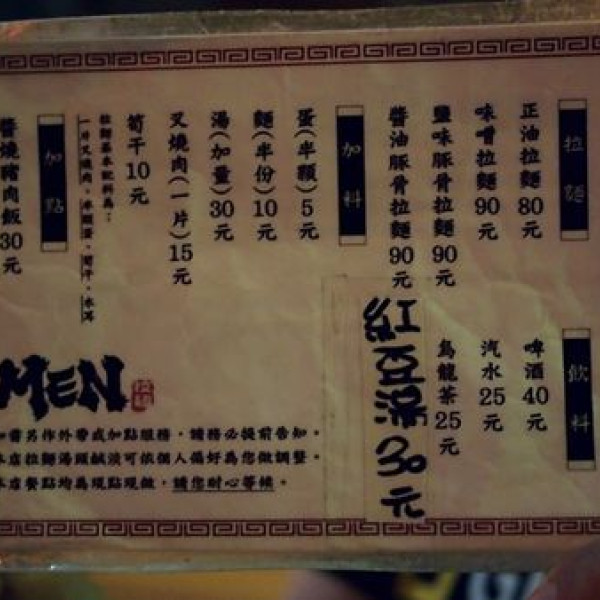 拉麵
正油拉麵80元
味噌拉麵90元
鹽味豚骨拉麵90元
醬油豚骨拉麵90元
加料
蛋(半顆)5元
麵(半份)10元
湯(加量)30元
叉燒肉(一片)15元
筍干10元
拉麵基本配料為：
一片叉燒肉、半顆蛋、筍干、木耳
加點
醬燒豬肉飯30元
飲料
啤酒40元
汽水25元
烏龍茶25元
紅豆湯30元
MEN
如需另作外帶或加點服務，請務必提前告知。
本店拉麵湯頭鹹淡可依個人偏好為您做調整。
本店餐點均為現點現做，請您耐心等候。